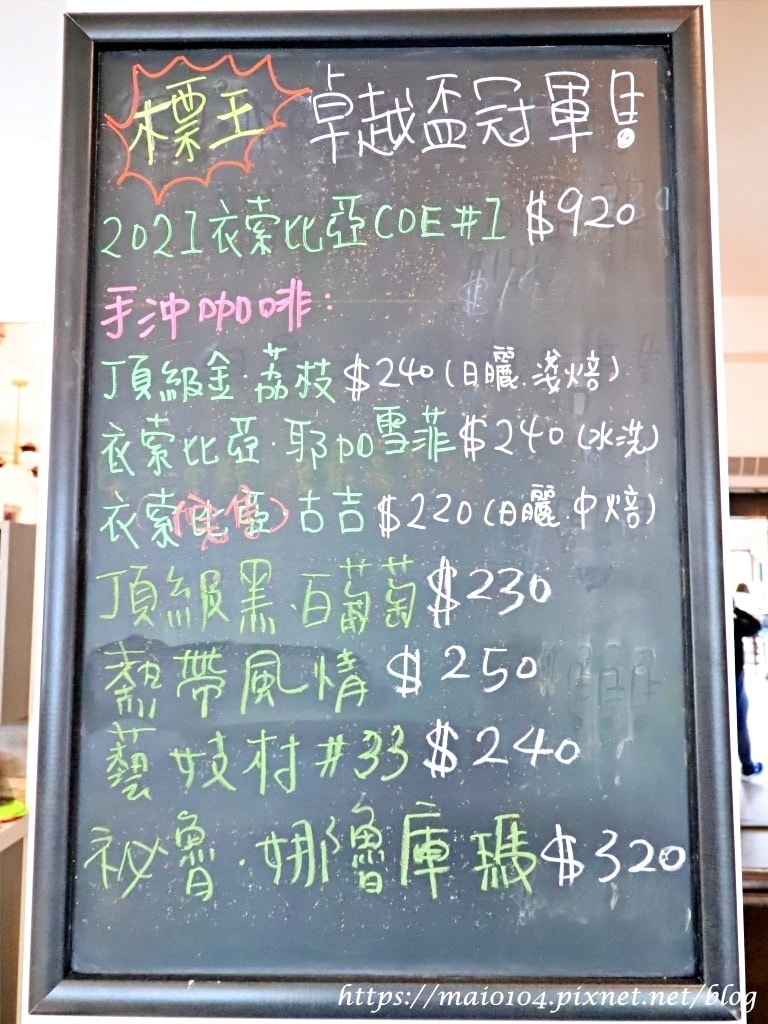 標王 卓越盃冠軍!
2021衣索比亞COE#1 $920
手沖咖啡:
頂級金·荔枝$240(日曬.淺焙)
衣索比亞·耶加雪菲$240(水洗)
衣索比亞·古吉$220(日曬.中焙)
(完售)
頂級黑·白葡萄$230
熱帶風情 $250
藝妓村#33 $240
祕魯·娜魯庫瑪$320
https://maio104.pixnet.net/blog